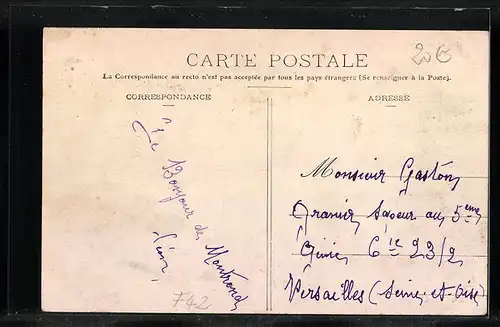 CARTE POSTALE
20€
La Correspondance au recto n'est pas acceptée par tous les pays étrangers (Se renseigner à la Poste).
CORRESPONDANCE
ADRESSE
Le Bonjour de Montrond
F42
Monsieur Gaston
Granier Sapeur au 5eme
Génie 6 ie 23/2
Versailles (Seine-et-Oise)